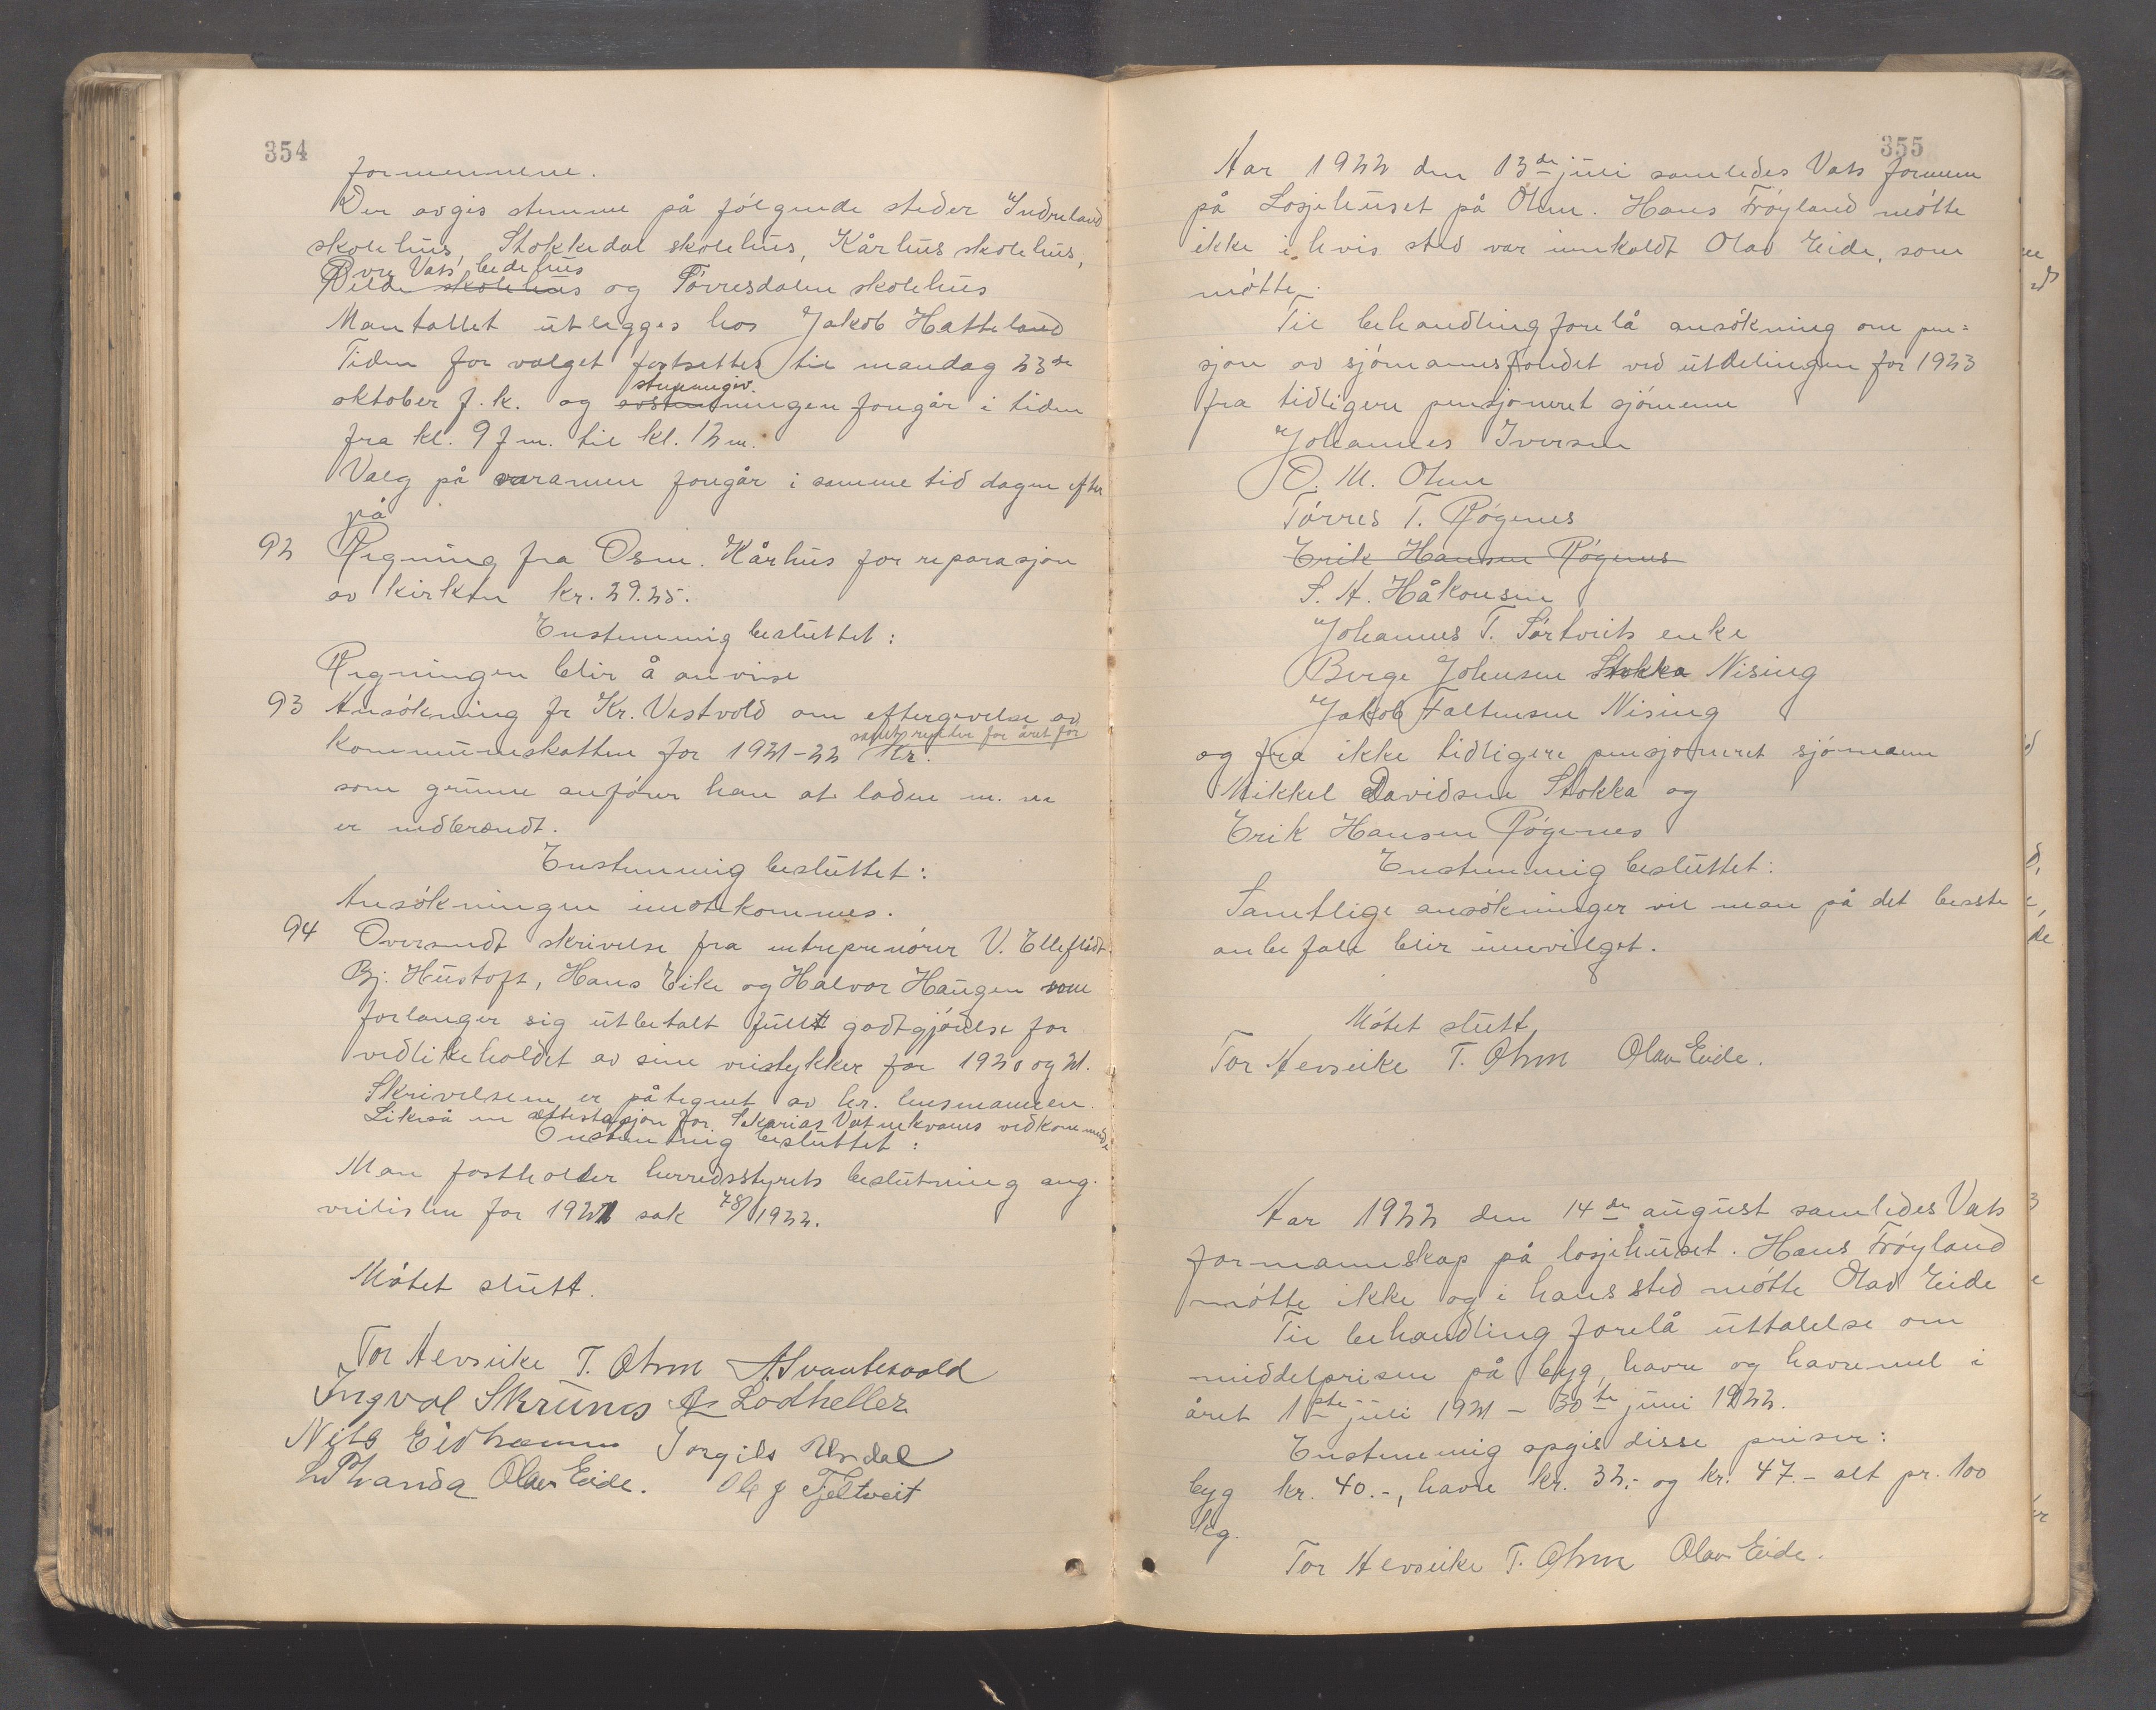 354
formennene.
Der avgis stemme på følgende steder Indreland
skolehus, Stokkedal skolehus, Kårhus skolehus,
Øvre Vats bedehus
skolehus og Tørresdalen skolehus
Mantallet utlegges hos Jakob Hatteland
Tiden for valget fastsettes til mandag 23de
oktober f.k. og
stemmegiv.
ningen foregår i tiden
fra kl. 9 fm. til kl. 12 m.
Valg på varamen foregår i samme tid dagen efter
på
92 Regning fra Osm. Kårhus for reparasjon
av kirken kr. 29.25.
Enstemmig besluttet:
Regningen blir å anvise
93 Ansøkning fr Kr. Vestvold om eftergivelse av
samt renter for året før
kommuneskatten for 1921-22 Kr.
som grunne anfører han at laden m. m
er nedbrændt.
Enstemmig besluttet:
Ansøkningen imøtekommes.
94 Oversendt skrivelse fra entreprenører V. Ellefsødt
Bj. Hustoft, Hans Eike og Halvor Haugen som
forlanger sig utbetalt fullt godtgjørelse for
vedlikeholdet av sine veistykker for 1920 og 21.
Skrivelsen er påtegnet av hr. lensmannen.
Likeså en attestasjon for Sakarias Vatnekvams vedkommende
Enstemmig besluttet:
Man fastholder herredsstyrets beslutning ang.
veilisten for 1921 sak 78/1922.
Møtet slutt.
Tor Hevseike T. Ohm A. Svantesvold
Ingval Skrunes A Lodheller
Nils Eidhammer Torgils Urdal
Olav Eide. Ole J Fjeltveit
355
Aar 1922 den 13de juli samledes Vats formen
på Losjehuset på Ølen. Hans Frøyland møtte
ikke i hvis sted var innkaldt Olav Eide, som
møtte.
Til behandling forelå ansøkning om pen=
sjon av sjømannsfondet ved utdelingen for 1923
fra tidligere pensjoneret sjømenn
Johannes Iversen
O. M. Ohm
Tørres T. Røgenes
Erik Hansen Røgenes
S. A. Håkonsen
Johannes T. Sørtveits enke
Berge Johnsen Stokka Nising
Jakob Faltensen Nising
og fra ikke tidligere pensjoneret sjømann
Mikkel Davidsen Stokka og
Erik Hansen Røgenes
Enstemmig besluttet:
Samtlige ansøkninger vil man på det besste
anbefale blir innvilget.
Møtet slutt
Tor Hevseike T. Ohm Olav Eide.
Aar 1922 den 14de august samledes Vats
formannskap på losjehuset. Hans Frøyland
møtte ikke og i hans sted møtte Olav Eide
Til behandling forelå uttalelse om
middelprisen på byg, havre og havremel i
året 1ste juli 1921 - 30te juni 1922.
Enstemmig opgis disse priser:
byg kr. 40.-, havre kr. 32.- og kr. 47.- alt pr. 100
kg.
Tor Hevseike T. Ohm Olav Eide.